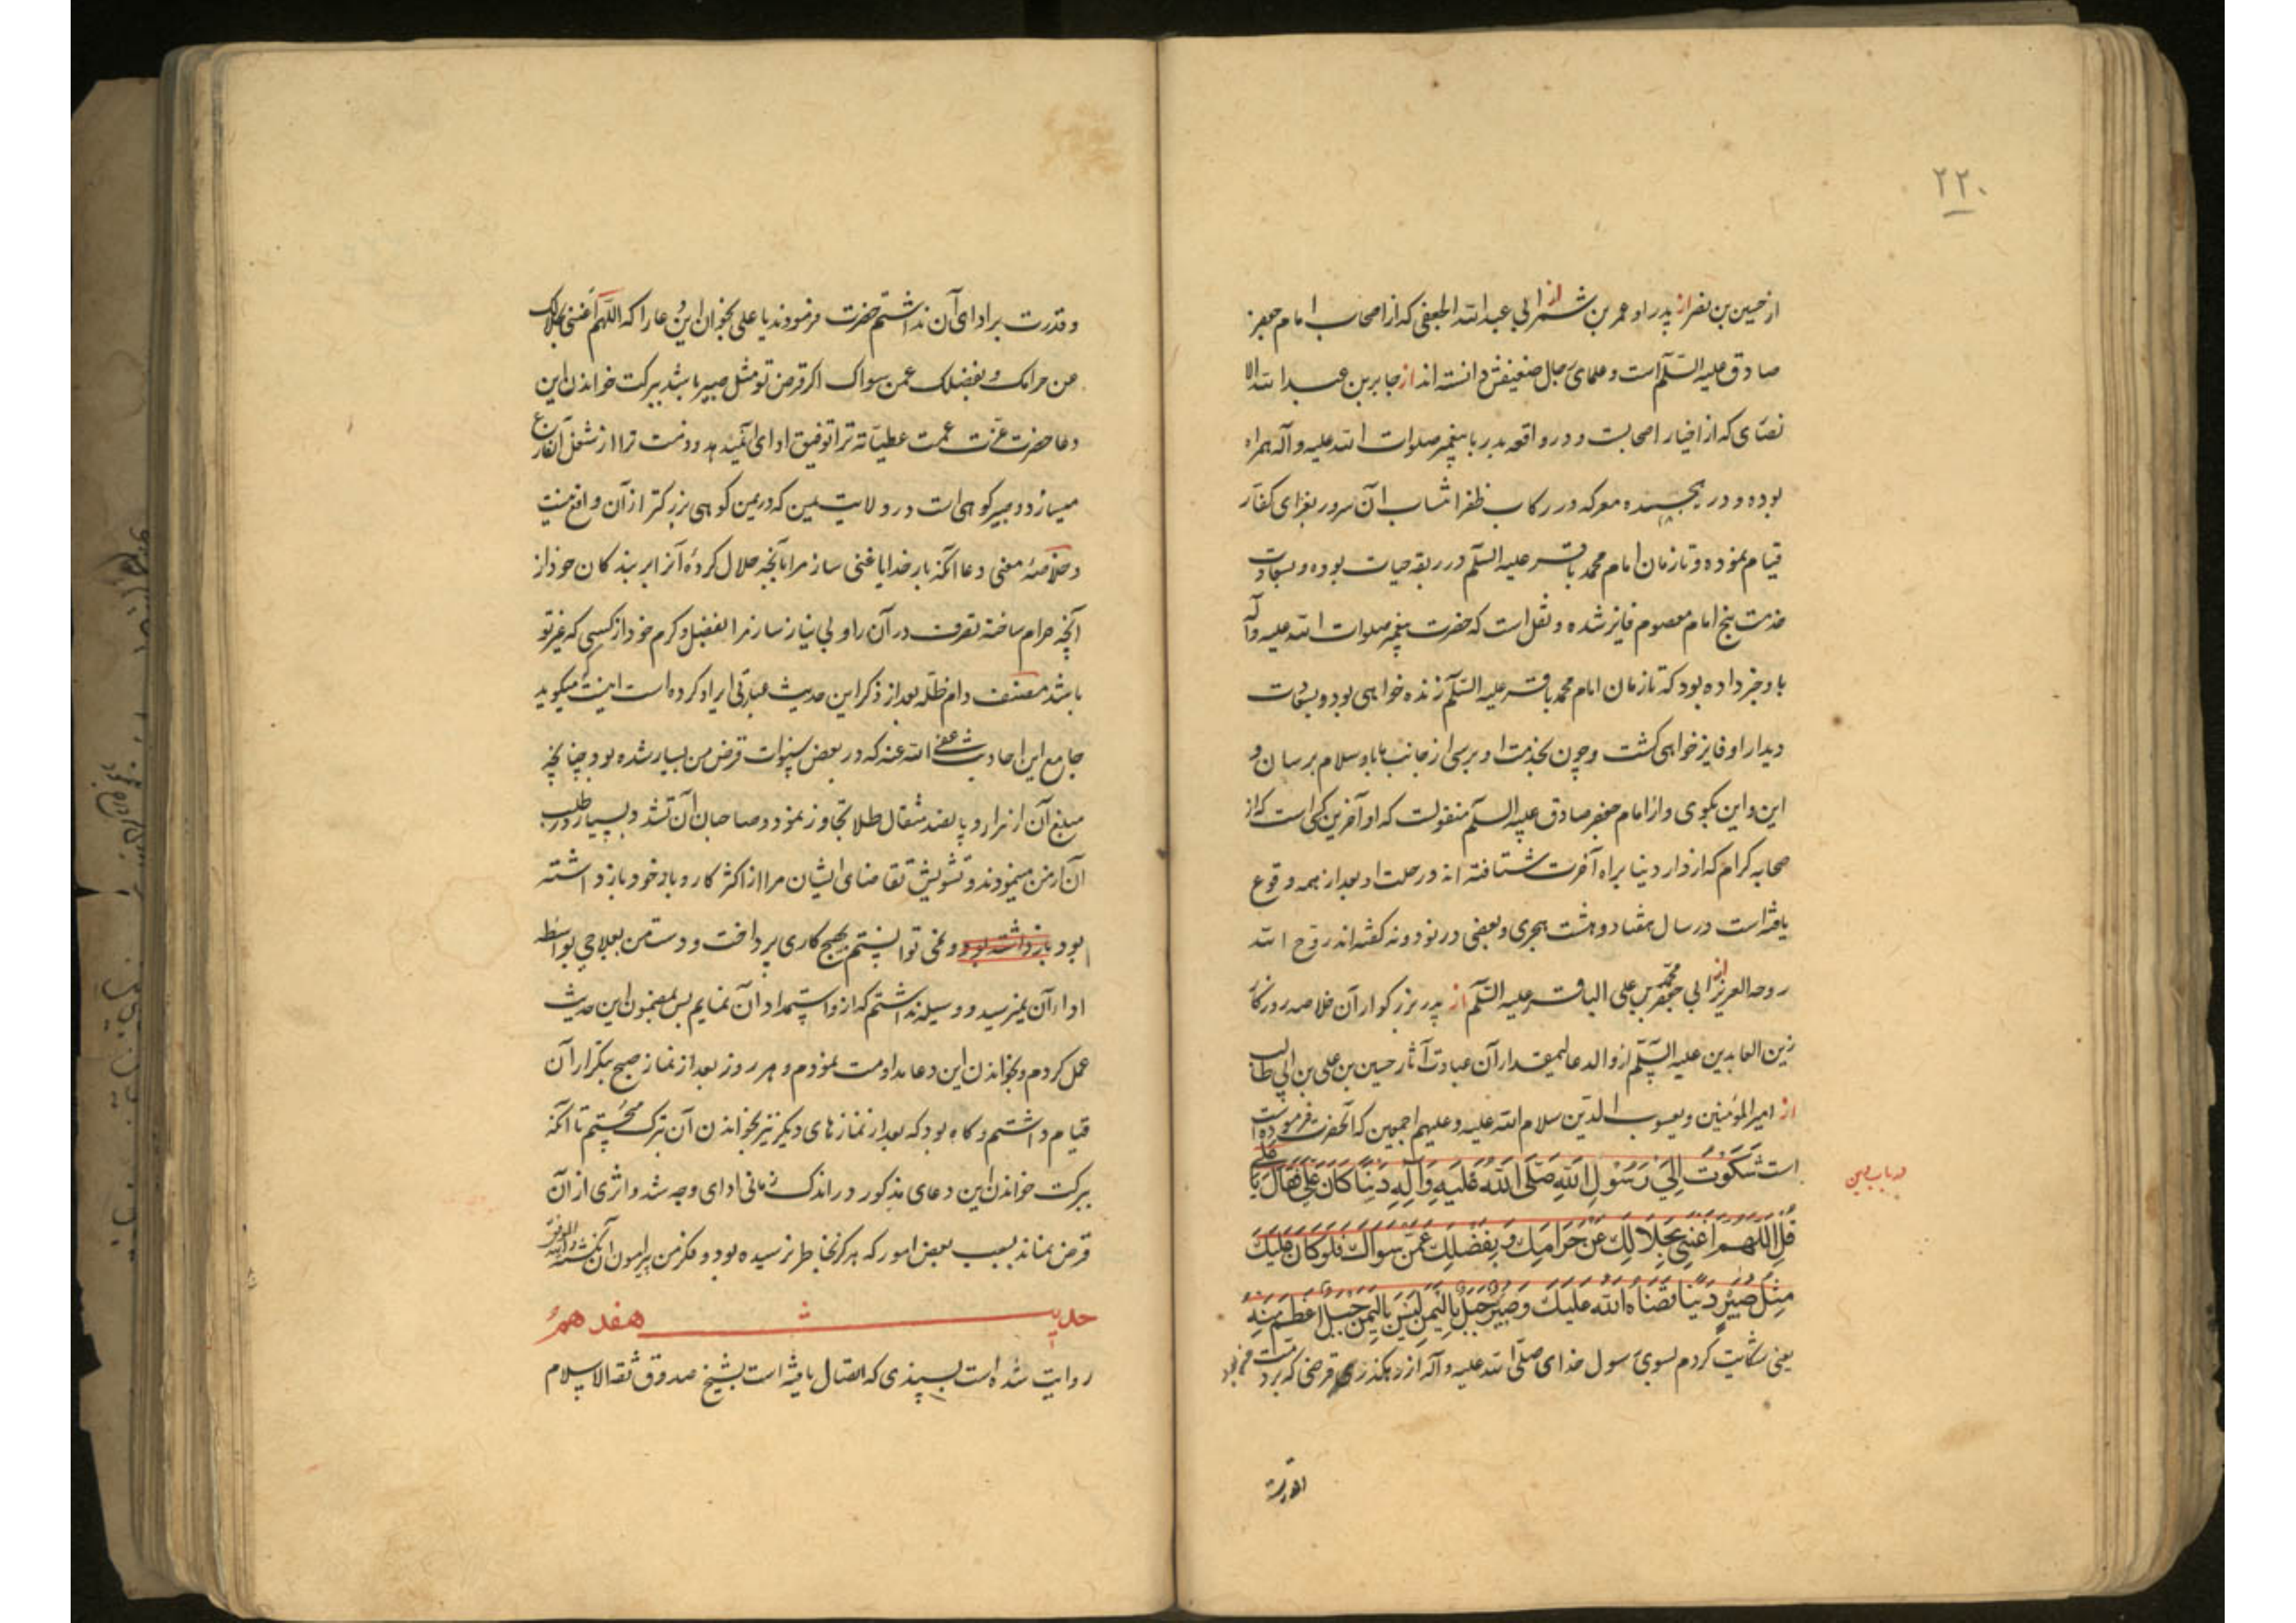 ۲۲۰
از حسین بن نصر از پدر او عمر بن شمر از ابی عبدالله الجعفی که از اصحاب امام جعفر
صادق علیه السلام است و علمای رجال ضعیفش دانسته اند از جابر بن عبدالله الا
نصاری که از اخیار اصحابست و در واقعه بدر با پیغمبر صلوات الله علیه و آله همراه
بوده و در هجده معرکه در رکاب ظفر انتساب آن سرور بغزای کفار
قیام نموده و تا زمان امام محمد باقر علیه السلام در ربقه حیات بوده و بسعادت
خدمت پنج امام معصوم فایز شده و نقل است که حضرت پیغمبر صلوات الله علیه و آله
باو خبر داده بود که تا زمان امام محمد باقر علیه السلام زنده خواهی بود و بسعادت
دیدار او فایز خواهی گشت و چون بخدمت او برسی از جانب ما باو سلام برسان و
این و این بگوی و از امام جعفر صادق علیه السلام منقولست که او آخرین کسی است که از
صحابه کرام که از دار دنیا براه آخرت شتافته اند و رحلت او بعد از همه وقوع
یافته است در سال هفتاد و هشت هجری و بعضی در نود و نه گفته اند روح الله
روحه العزیز از ابی جعفر محمد بن علی الباقر علیه السلام از پدر بزرگوار آن خلاصه روزگار
زین العابدین علیه السلام از والد عالیمقدار آن عبادت آثار حسین بن علی بن ابی طالب
از امیر المؤمنین و یعسوب الدین سلام الله علیه و علیهم اجمعین که آنحضرت فرموده
است شَکَوْتُ اِلیٰ رَسُولِ اللهِ صَلَّی اللهُ عَلَیهِ وَآلِهِ دَیْنًا کَانَ عَلَیَّ فَقَالَ یَا عَلِی
قُلِ اللّٰهُمَّ اَغْنِنِی بِحَلَالِکَ عَنْ حَرَامِکَ وَ بِفَضْلِکَ عَمَّنْ سِوَاکَ فَلَوْ کَانَ عَلَیْکَ
مِثْلُ صَبِیرٍ دَیْنًا قَضَاهُ اللهُ عَلَیْکَ وَ صَبِیرٌ جَبَلٌ بِالْیَمَنِ لَیْسَ بِالْیَمَنِ جَبَلٌ اَعْظَمُ مِنْهُ
یعنی شکایت کردم بسوی رسول خدای صلی الله علیه و آله از رهگذر قرضی که بر ذمت من بود
و قدرت
و قدرت بر ادای آن نداشتم حضرت فرمودند یا علی بخوان این دعا را که اللهم اغننی بحلالک
عن حرامک و بفضلک عمن سواک اگر قرض تو مثل صبیر باشد ببرکت خواندن این
دعا حضرت عزت عمت عطیاته ترا توفیق ادای آن میدهد و ذمت ترا از شغل آن فارغ
میسازد و صبیر کوهی است در ولایت یمن که در یمن کوهی بزرگتر از آن واقع نیست
و خلاصهٔ معنی دعا آنکه بار خدایا غنی ساز مرا بآنچه حلال کردهٔ آنرا بر بندگان خود از
آنچه حرام ساختهٔ تصرف در آن را و بی نیاز ساز مرا بفضل و کرم خود از کسی که غیر تو
باشد مصنف دام ظله بعد از ذکر این حدیث عبارتی ایراد کرده است اینست که میگوید
جامع این احادیث عفی الله عنه که در بعض سنوات قرض من بسیار شده بود چنانچه
مبلغ آن از هزار و پانصد مثقال طلا تجاوز نمود و صاحبان آن تشدد بسیار در طلب
آن از من مینمودند و تشویش تقاضای ایشان مرا از اکثر کار و بار خود باز داشته
بود باز داشته بود و نمی توانستم بهیچ کاری پرداخت و دست من بعلاجی بواسطه
اداء آن نمیرسید و وسیله نداشتم که ازو استمداد آن نمایم پس بمضمون این حدیث
عمل کردم و بخواندن این دعا مداومت نمودم و هر روز بعد از نماز صبح بتکرار آن
قیام داشتم و گاه بود که بعد از نمازهای دیگر نیز بخواندن آن تبرک میجستم تا آنکه
ببرکت خواندن این دعای مذکور در اندک زمانی ادای وجه شد و اثری از آن
قرض نماند بسبب بعض امور که هرگز بخاطر نرسیده بود و فکر من پیرامون آن نگشته والله الموفق
حدیث هفدهم
روایت شده است بسندی که اتصال یافته است بشیخ صدوق ثقة الاسلام